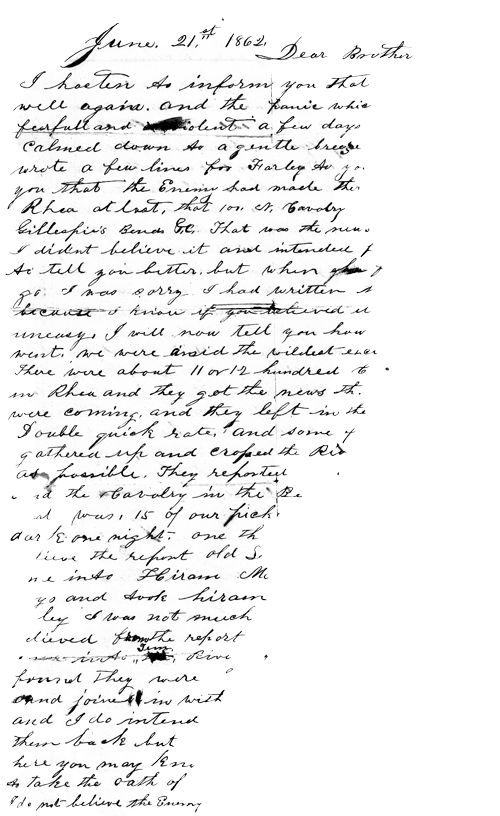 June. 21.st 1862.
Dear Brother
I hasten to inform you that
well again. and the panic whic
fearfull and violent a few days
calmed down to a gentle breeze
wrote a few lines for Farley to yo
you that the Enemy had made the
Rhea at last, that 100. N. Cavalry
Gillespie's Bend &c. That was the new
I didnt believe it and intended f
to tell you better, but when
go. I was sorry I had written
because I know if you believed it
uneasy, I will now tell you how
went. we were amid the wildest exci
There were about 11 or 12 hundred to
in Rhea and they got the news th.
were coming, and they left in the
Double quick rate, and some
gathered up and crossed the Riv
as possible. They reported
the Cavalry in the Be
was, 15 of our pick
dark one night. one th
lieve the report old S.
ne into Hiram Mc
ys and took hiram
ley I was not much
elieved from the report
into Tenn. Rive
found they were
and joined in with
and I do intend
them back but
here you may kn
to take the oath of
I do not believe the Enemy